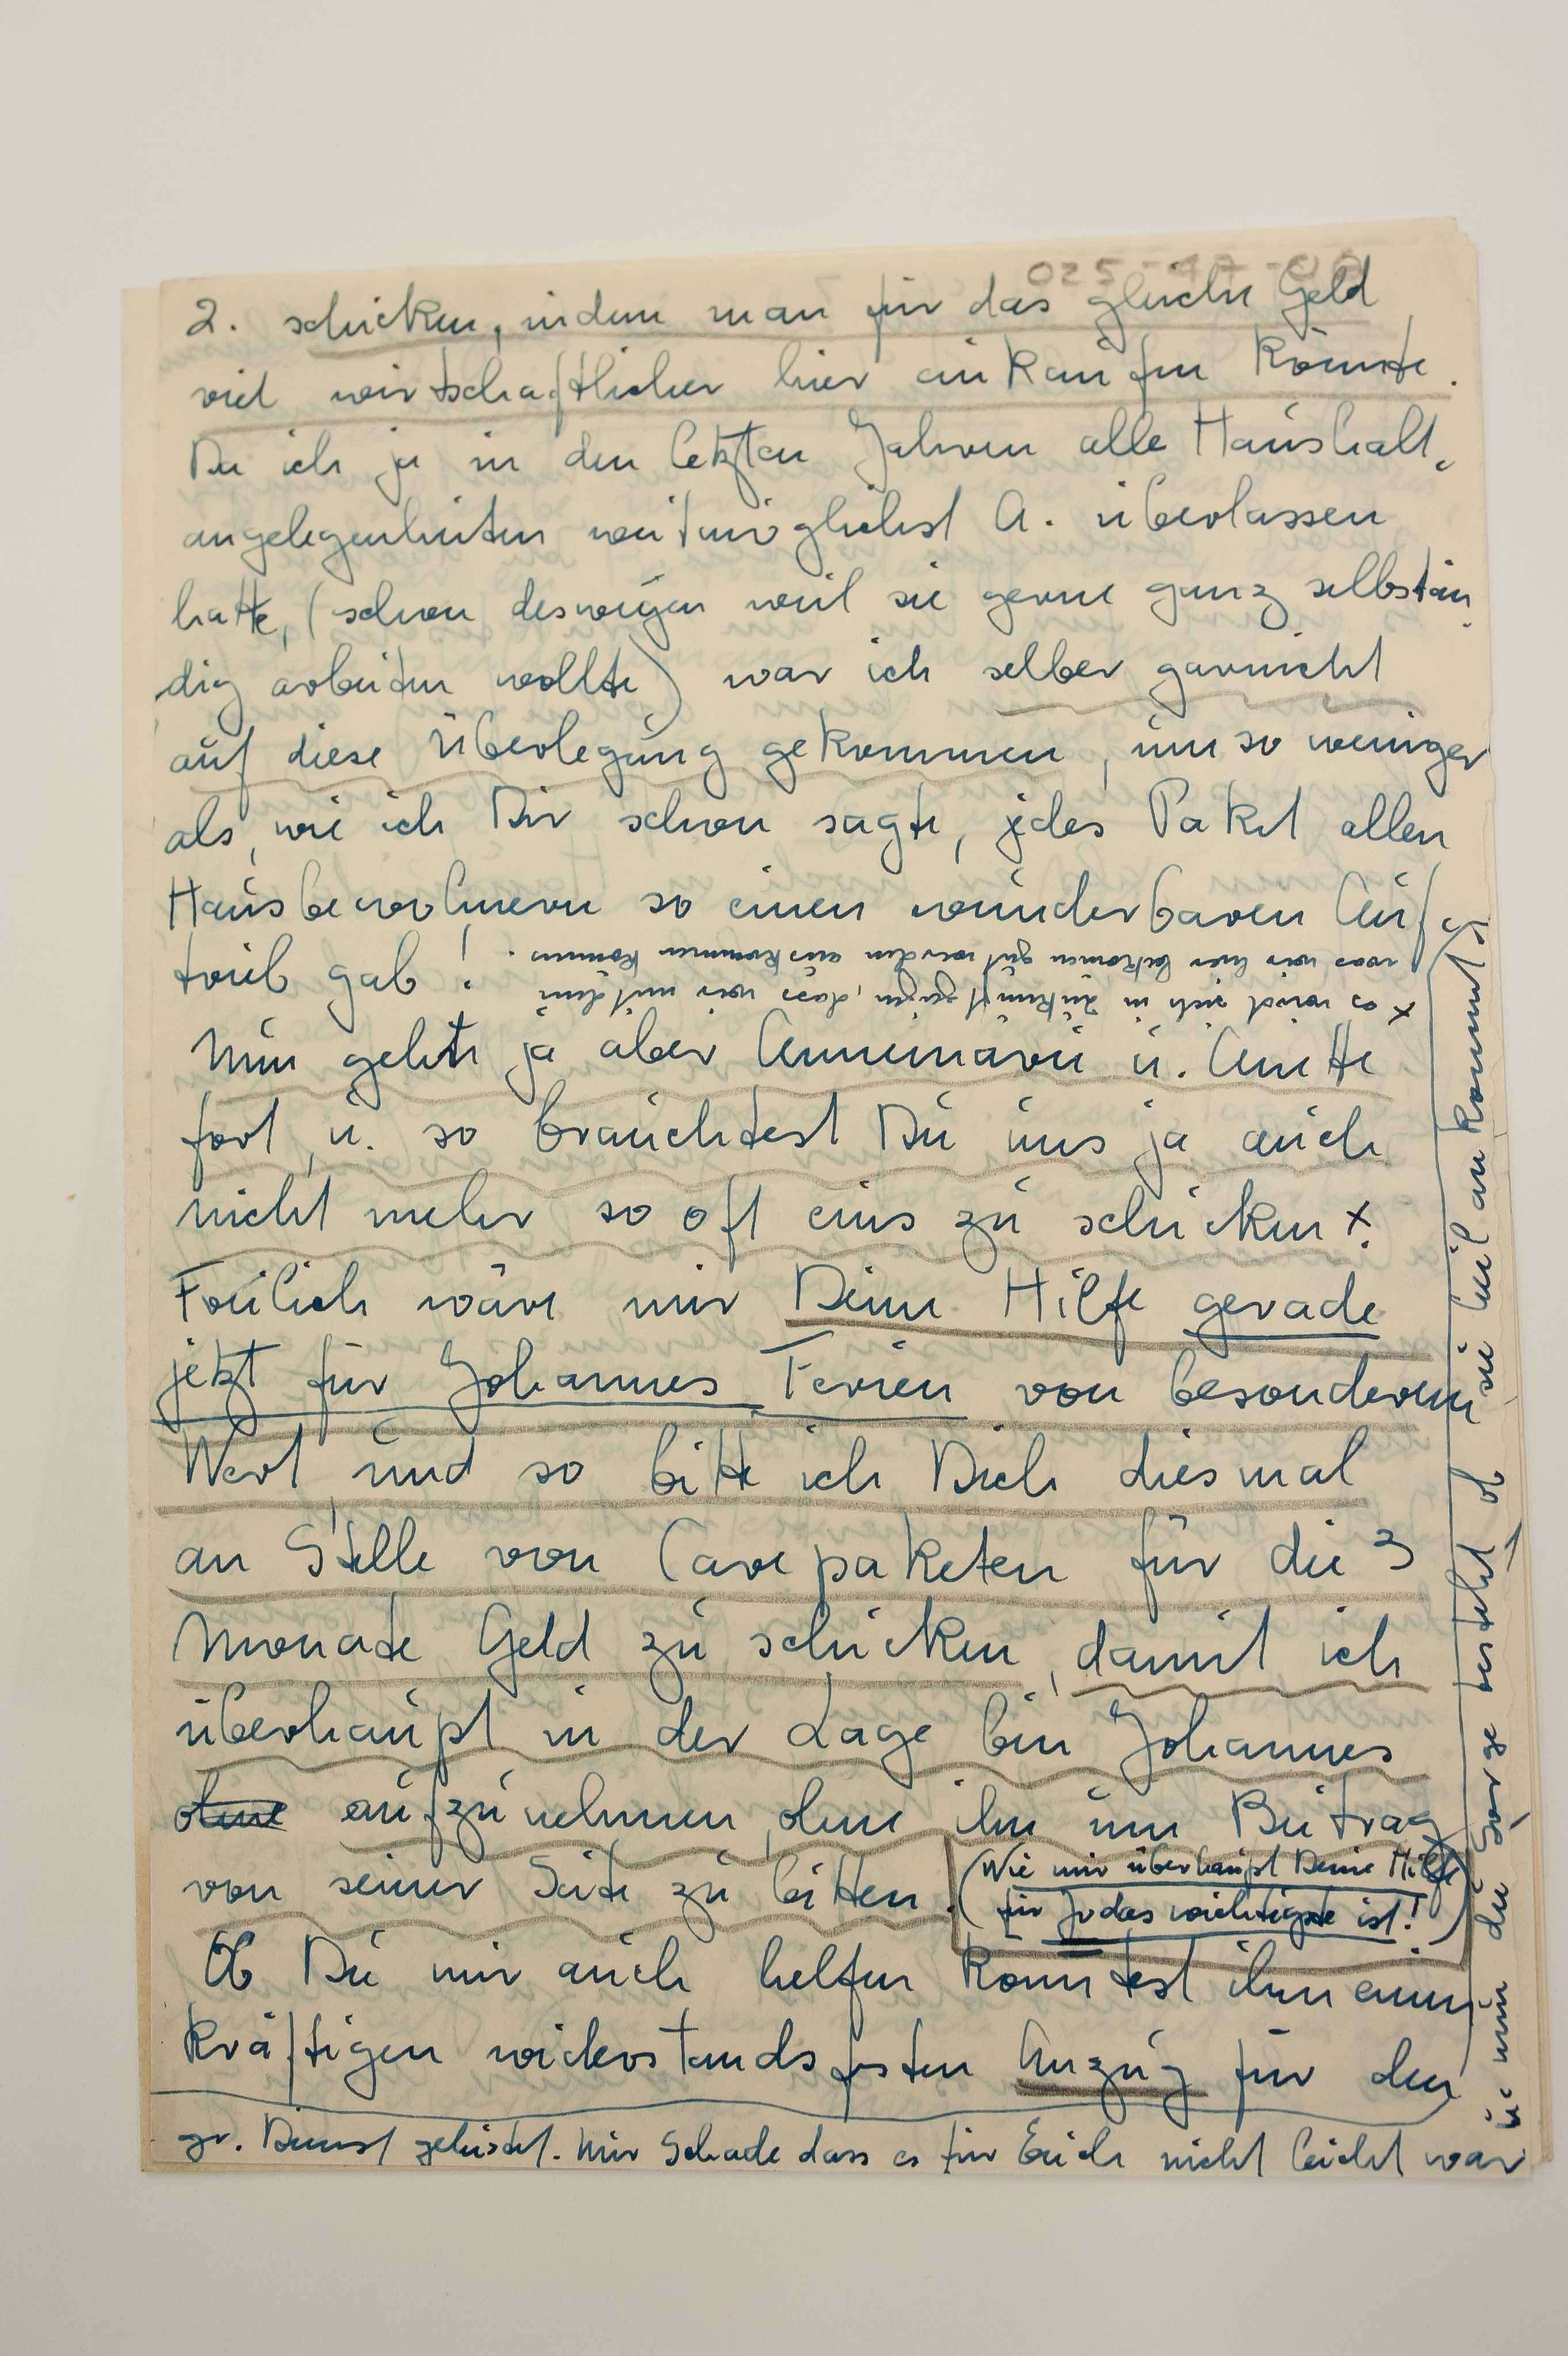 025-47-
2. schicken, indem man für das gleiche Geld
viel wirtschaftlicher hier einkaufen könnte.
Da ich ja in den letzten Jahren alle Haushalt-
angelegenheiten weitmöglichst A. überlassen
hatte, (schon deswegen weil sie gerne ganz selbstän-
dig arbeiten wollte) war ich selber garnicht
auf diese Überlegung gekommen, um so weniger
als, wie ich Dir schon sagte, jedes Paket allen
Hausbewohnern so einen wunderbaren Auf-
trieb gab!
x es wird sich in Zukunft zeigen, dass wir mit dem
was wir hier bekommen gut werden auskommen können.
Nun geht ja aber Annemarie u. Anette
fort, u. so brauchtest Du uns ja auch
nicht mehr so oft eins zu schicken x.
Freilich wäre mir Deine Hilfe gerade
jetzt für Johannes Ferien von besonderem
Wert und so bitte ich Dich diesmal
an Stelle von Carepaketen für die 3
Monate Geld zu schicken, damit ich
überhaupt in der Lage bin Johannes
ohne aufzunehmen, ohne ihn um Beitrag
von seiner Seite zu bitten.
(Wie mir überhaupt Deine Hilfe
für Jo das wichtigste ist!)
Ob Du mir auch helfen könntest ihm einen
kräftigen widerstandsfesten Anzug für den
gr. Dienst geleistet. Nur Schade dass es für Euch nicht leicht war
u. nun die Sorge besteht ob sie heil ankommt